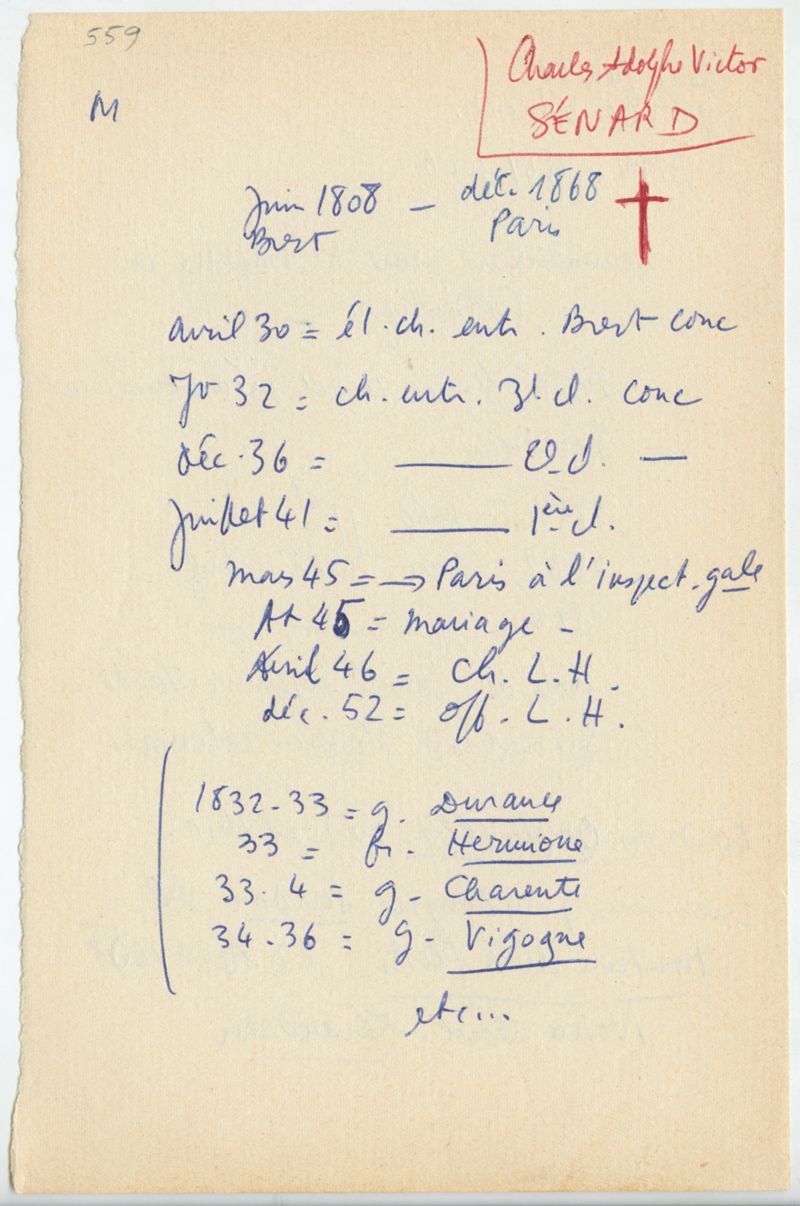 559
Charles Adolphe Victor
SÉNARD
M
Juin 1808 — déc. 1868
Brest Paris
avril 30 = él. ch. entr. Brest conc
Jv 32 = ch. entr. 3e cl. conc
déc. 36 = —— 2e cl. —
Juillet 41 = —— 1ère cl.
mars 45 = → Paris à l'inspect. gale
At 45 = mariage -
Avril 46 = ch. L. H.
déc. 52 = off. L. H.
1832-33 = g. Durance
33 = fr. Hermione
33.4 = g - Charente
34-36 = g - Vigogne
etc...